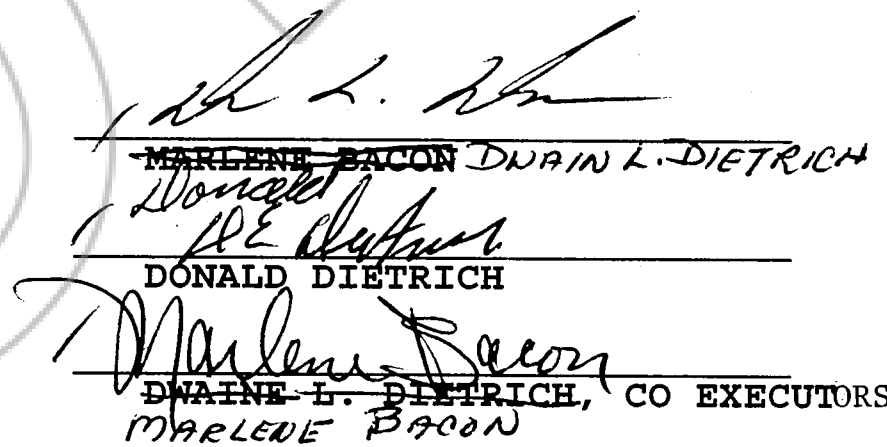 L.
MARLENE BACON DWAIN L. DIETRICH
Donald
DE Dietrich
DONALD DIETRICH
Marlene Bacon
DWAINE L. DIETRICH, CO EXECUTORS
MARLENE BACON